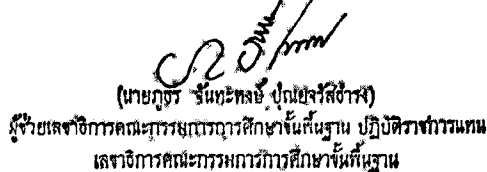 (นายภูธร จันทะหงษ์ ปุณยจรัสธำรง)
ผู้ช่วยเลขาธิการคณะกรรมการการศึกษาขั้นพื้นฐาน ปฏิบัติราชการแทน
เลขาธิการคณะกรรมการการศึกษาขั้นพื้นฐาน